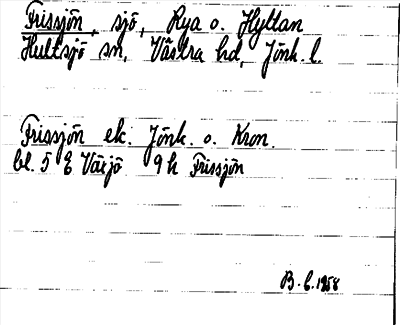 Frissjön, sjö, Rya o. Hyltan
Hultsjö sn, Västra hd, Jönk. l.
Frissjön ek. Jönk. o. Kron.
bl. 5 E Växjö 9 h Frissjön
B. 6. 1958